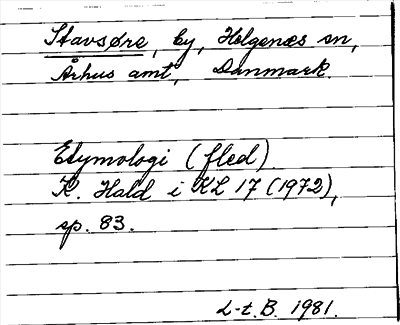 Stavsøre, by, Helgenæs sn,
Århus amt, Danmark.
Etymologi (fled).
K. Hald i KL 17 (1972),
sp. 83.
L-t. B. 1981.